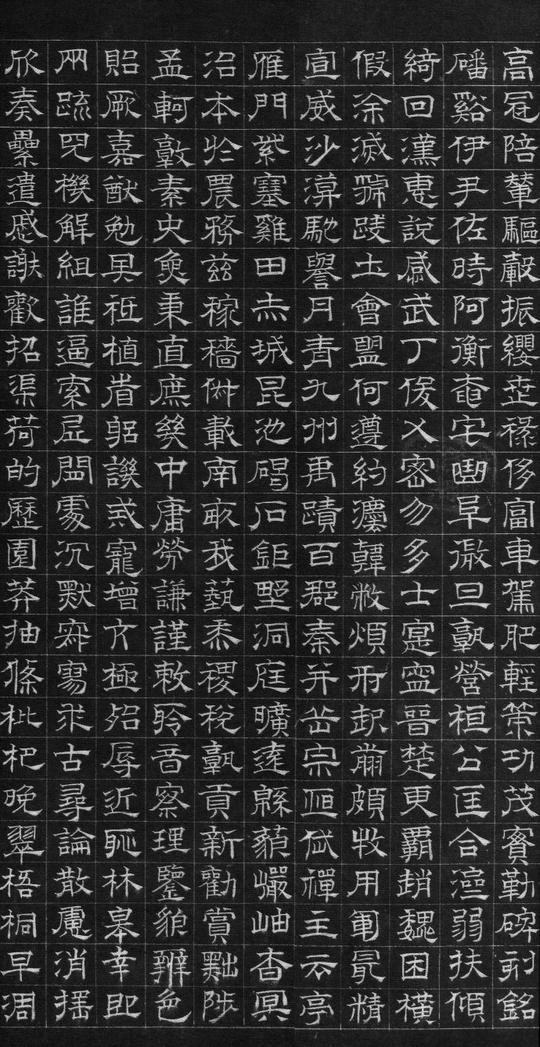 高冠陪輦驅轂振纓世祿侈富車駕肥輕策功茂實勒碑刻銘
磻谿伊尹佐時阿衡奄宅曲阜微旦孰營桓公匡合濟弱扶傾
綺回漢惠說感武丁俊乂密勿多士寔寧晉楚更霸趙魏困橫
假涂滅虢踐土會盟何遵約灋韓弊煩刑起翦頗牧用軍最精
宣威沙漠馳譽丹青九州禹蹟百郡秦并岳宗恆岱禪主云亭
雁門紫塞雞田赤城昆池碣石鉅野洞庭曠遠緜藐巖岫杳冥
治本於農務茲稼穡俶載南畝我藝黍稷稅孰貢新勸賞黜陟
孟軻敦素史魚秉直庶幾中庸勞謙謹敕聆音察理鑒貌辨色
貽厥嘉猷勉其祗植省躬譏誡寵增亢極殆辱近恥林皋幸即
兩疏見機解組誰逼索居閒處沉默寂寥求古尋論散慮消搖
欣奏纍遣慼謝歡招渠荷的歷園莽抽條枇杷晚翠梧桐早凋